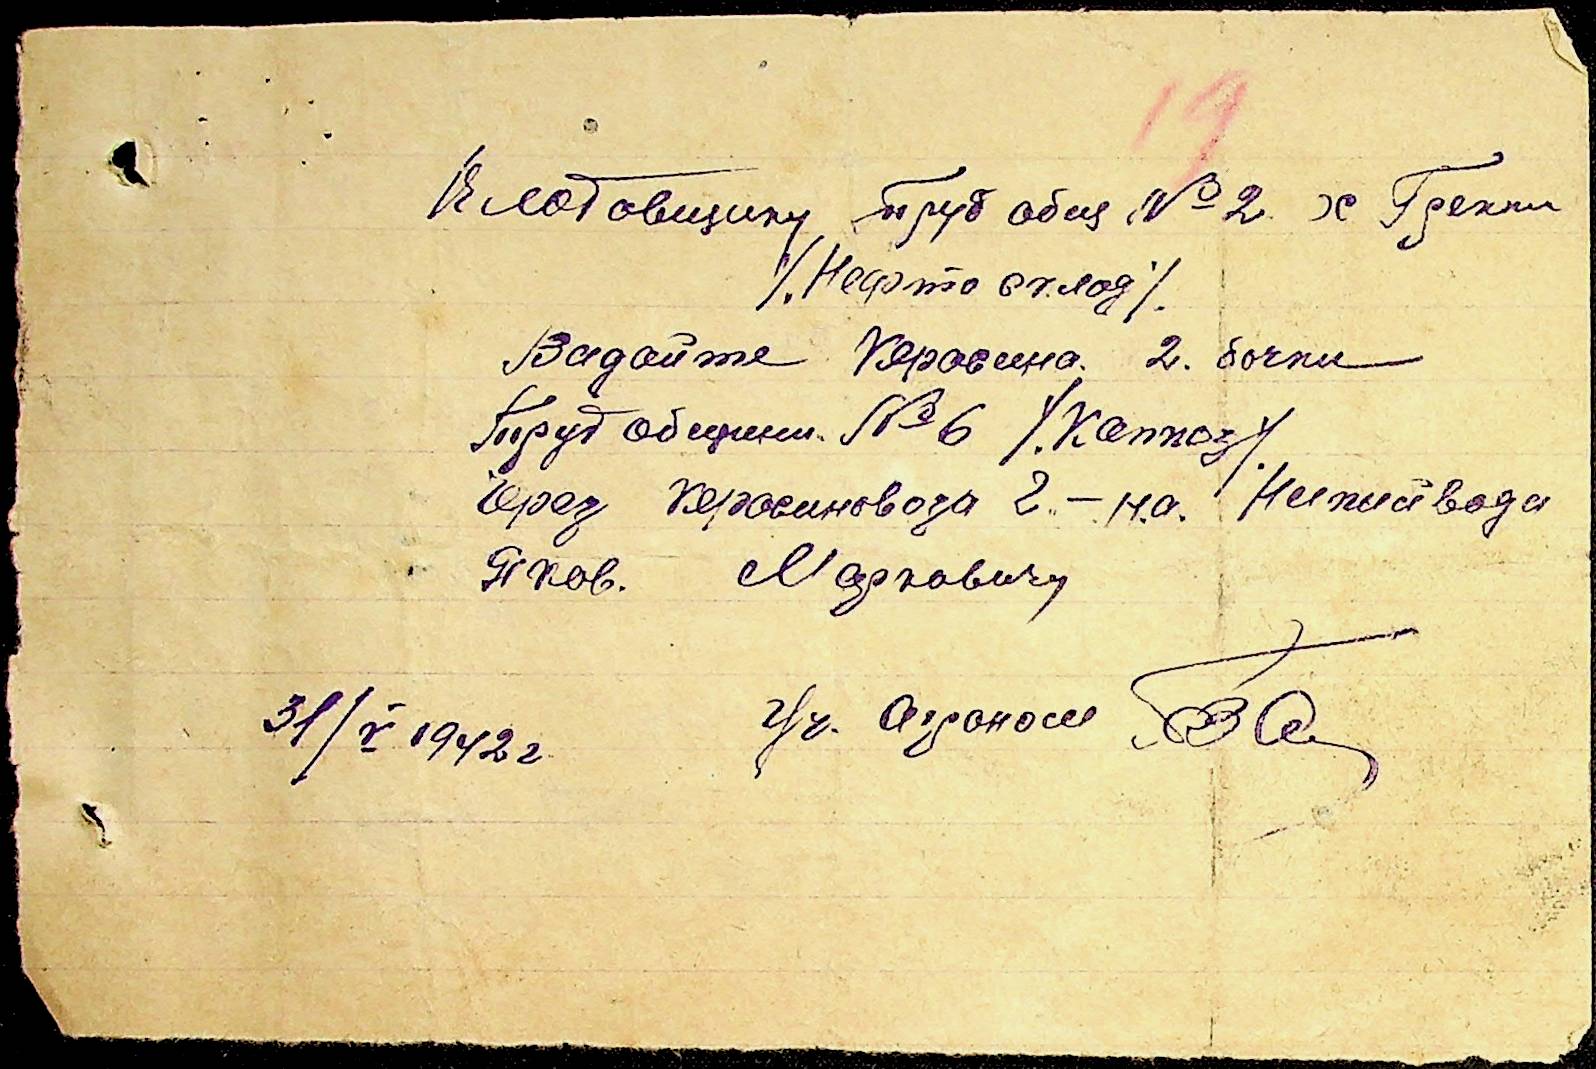 19
Клодовщику труд общ №2 х Грекки
/."Нефто склад"/.
Видайте Керосина. 2. бочки
Труд общини. №6 /.
Через Керосиновоза 2 – н.а. Непийвода
Яков. Марковичу
31/V 1942 г. Уч. Агроном